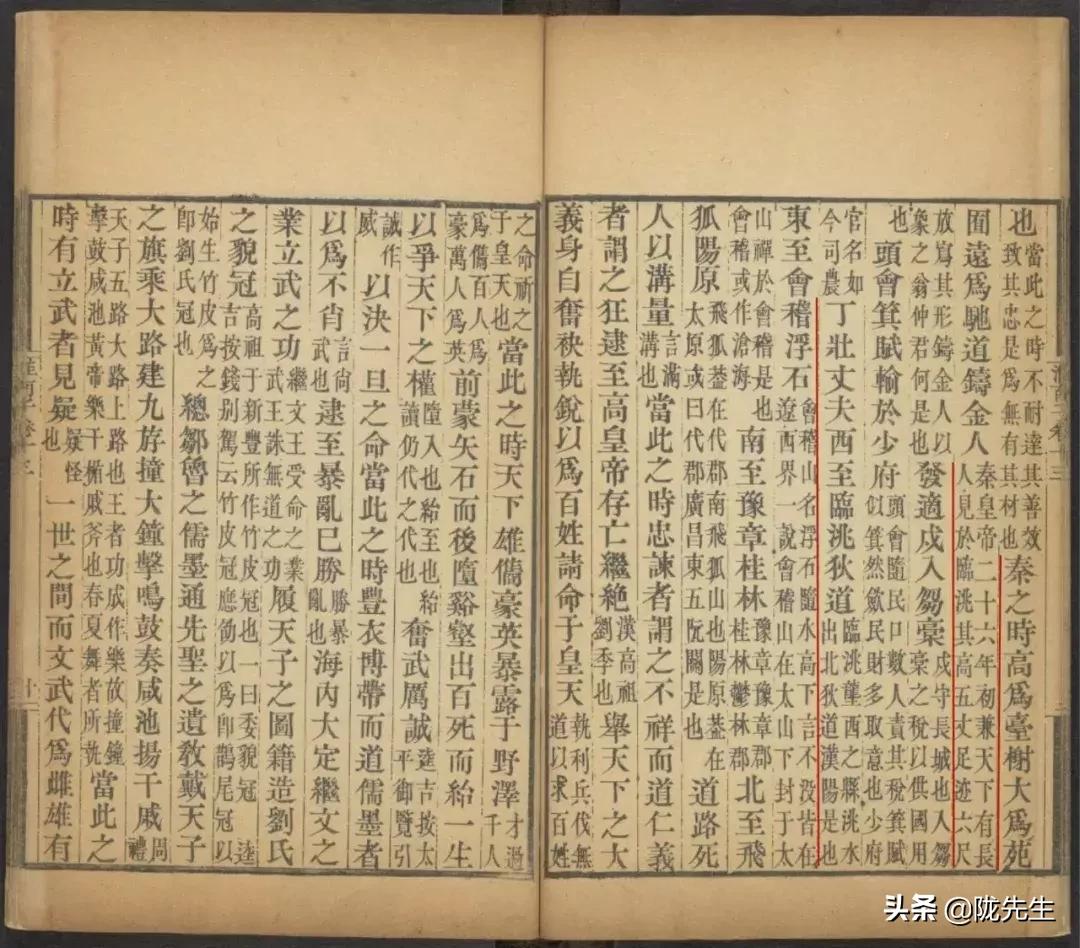 也當此之時不耐達其善效致其忠是爲無有其材也秦之時高爲臺榭大爲苑
囿遠爲馳道鑄金人秦皇帝二十六年初兼天下有長人見於臨洮其高五丈足迹六尺
放寫其形鑄金人以象之翁仲君何是也發適戍入芻稾戍守長城也入芻稾之稅以供國用
也頭會箕賦輸於少府頭會隨民口數人責其稅箕賦似箕然歛民財多取意也少府
官名如今司農丁壯丈夫西至臨洮狄道臨洮隴西之縣洮水出北狄道漢陽是也
東至會稽浮石會稽山名浮石隨水高下言不沒皆在遼西界一說會稽山在太山下封于太
山禪於會稽是也會稽或作滄海南至豫章桂林豫章豫章郡桂林鬱林郡北至飛
狐陽原飛狐葢在代郡南飛狐山也陽原葢在太原或曰代郡廣昌東五阮關是也道路死
人以溝量言滿溝也當此之時忠諫者謂之不祥而道仁義
者謂之狂逮至高皇帝存亡繼絕漢高祖劉季也舉天下之大
義身自奮袂執銳以爲百姓請命于皇天執利兵伐無道以求百姓
之命祈之于皇天也當此之時天下雄儁豪英暴露于野澤才過千人
爲儁百人爲豪萬人爲英前蒙矢石而後墮谿壑出百死而紿一生
以爭天下之權墮入也紿至也紿讀仍代之代也奮武厲誠逵吉按太平御覽引
誠作威以決一旦之命當此之時豐衣博帶而道儒墨者
以爲不肖言尚武也逮至暴亂已勝勝暴亂也海內大定繼文之
業立武之功繼文王受命之業武王誅無道之功履天子之圖籍造劉氏
之貌冠高祖于新豐所作竹皮冠也一曰委貌冠逵吉按錢别駕云竹皮冠應劭以爲卽鵲尾冠以
始生竹皮爲之卽劉氏冠也總鄒魯之儒墨通先聖之遺教戴天子
之旗乘大路建九斿撞大鐘擊鳴鼓奏咸池揚干戚周禮
天子五路大路上路也王者功成作樂故撞鐘擊鼓咸池黃帝樂干楯戚斧也春夏舞者所執當此之
時有立武者見疑疑怪也一世之間而文武代爲雌雄有
头条 @陇先生